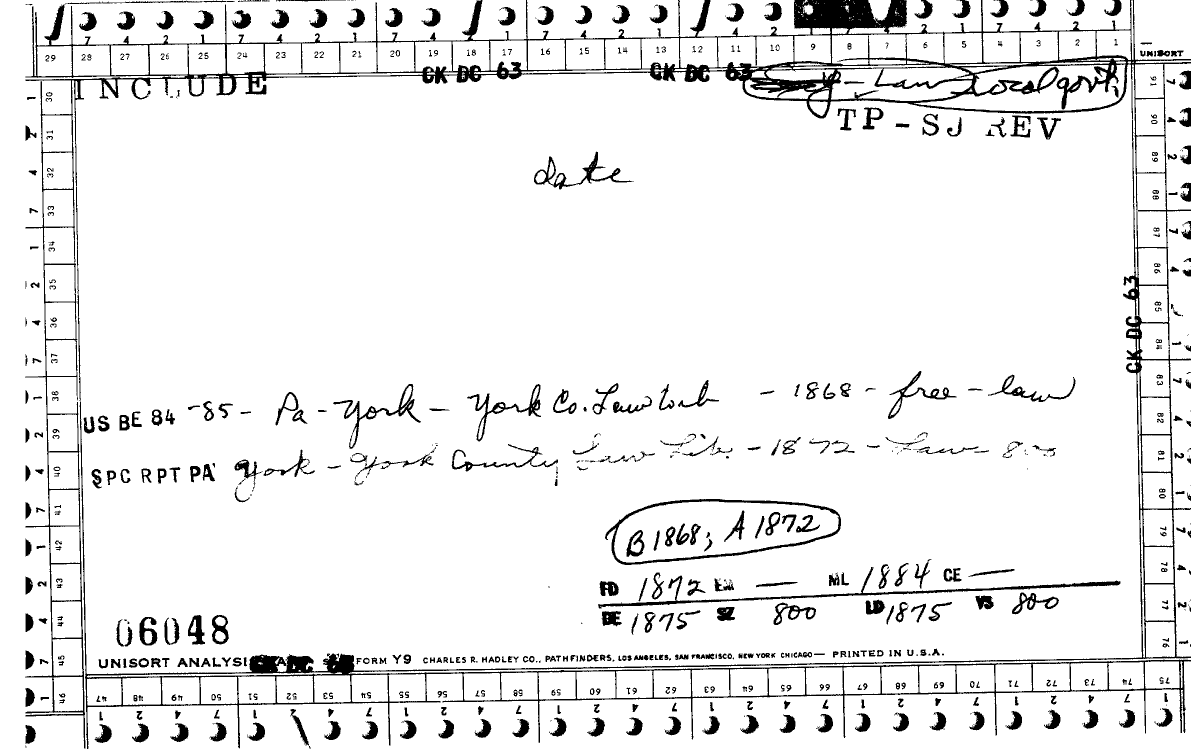 7 4 2 1 7 4 2 1 7 4 2 1 7 4 2 1 7 4 2 1
29 28 27 26 25 24 23 22 21 20 19 18 17 16 15 14 13 12 11 10 9 8 7 6 5 4 3 2 1 UNISORT
CK DC 63 CK DC 63
INCLUDE
Law Local gov't
TP-SJ REV
date
CK DC 63
US BE 84 -85 - Pa - York - York Co. Law - 1868 - free - law
SPC RPT PA York - York County Law Lib. - 1872 - Law 800
B 1868; A 1872
FD 1872 EM — ML 1884 CE —
DE 1875 SZ 800 LD 1875 VS 800
06048
UNISORT ANALYSIS FORM Y9 CHARLES R. HADLEY CO., PATHFINDERS, LOS ANGELES, SAN FRANCISCO, NEW YORK CHICAGO — PRINTED IN U.S.A.
47 48 49 50 51 52 53 54 55 56 57 58 59 60 61 62 63 64 65 66 67 68 69 70 71 72 73 74 75